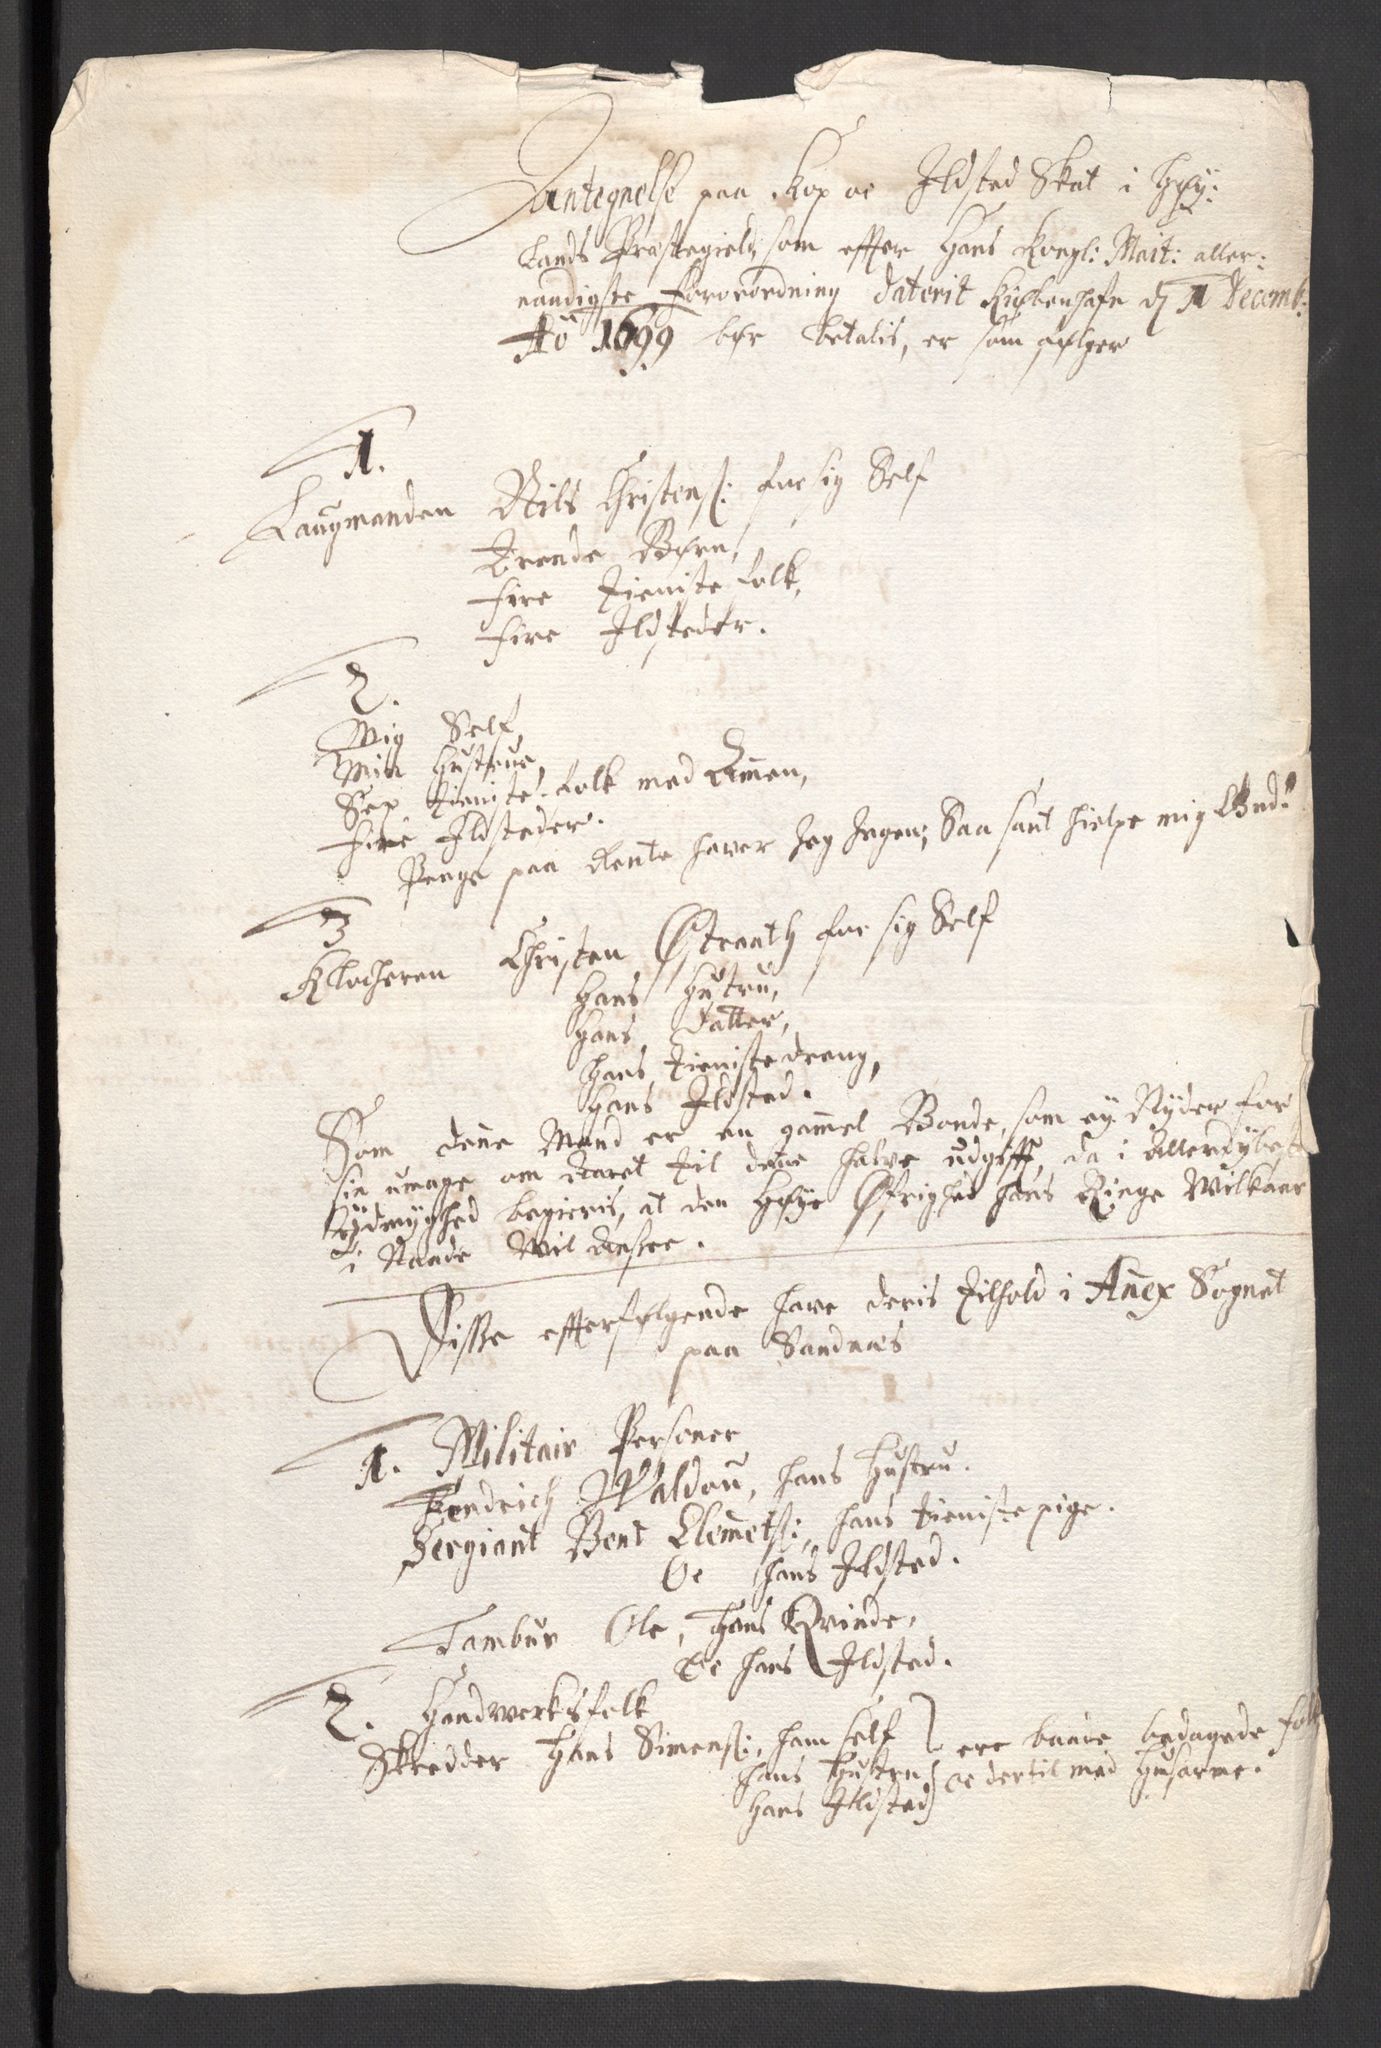 Antegnelse paa Kop oc Ildsted Skat i Høy:
lands Præstegield, som effter Hans Kongl: Mait: aller:
naadigste Forordning daterit Kiøbenhafn d 1 Decemb:
Aõ 1699 bør betalis, er som følger
1.
Laugmanden Nils Christens: for sig Self
Trende Børn,
Fire Tieniste folk,
Fire Ildsteder.
2.
Mig Self,
Min Hustrue,
Sex Tieniste-folk med Amen,
Fire Ildsteder.
Penge paa Rente haver Jeg Ingen, Saa sant hielpe mig Gud.
3
Klocheren Christen Østraath for sig Self
Hans Hustru,
Hans Datter,
Hans Tienistedreng,
Hans Ildsted.
Som dene Mand er en gamel Bonde, som ey Nyder for
sin umage om Aaret til dene halve udgifft, da i Allerdybest
Ydmyghed begieris, at den Høye Øfrighed hans Ringe Wilkaar
i Naade Wil Ansee.
Disse effterfølgende have deris Tilhold i Anex Sognet
paa Sandnæs
1. Militair Personer
Fendrich Waldou, hans Hustru.
Sergiant Bent Clemets:, hans Tienistepige.
Oc hans Ildsted.
Tambur Ole, hans Qvinde,
Oc hans Ildsted.
2. Handwerksfolk
Skredder Hans Simens:, ham self } ere baade bedagede folk
hans Hustru } oc dertil med Husarme.
Hans Ildsted }